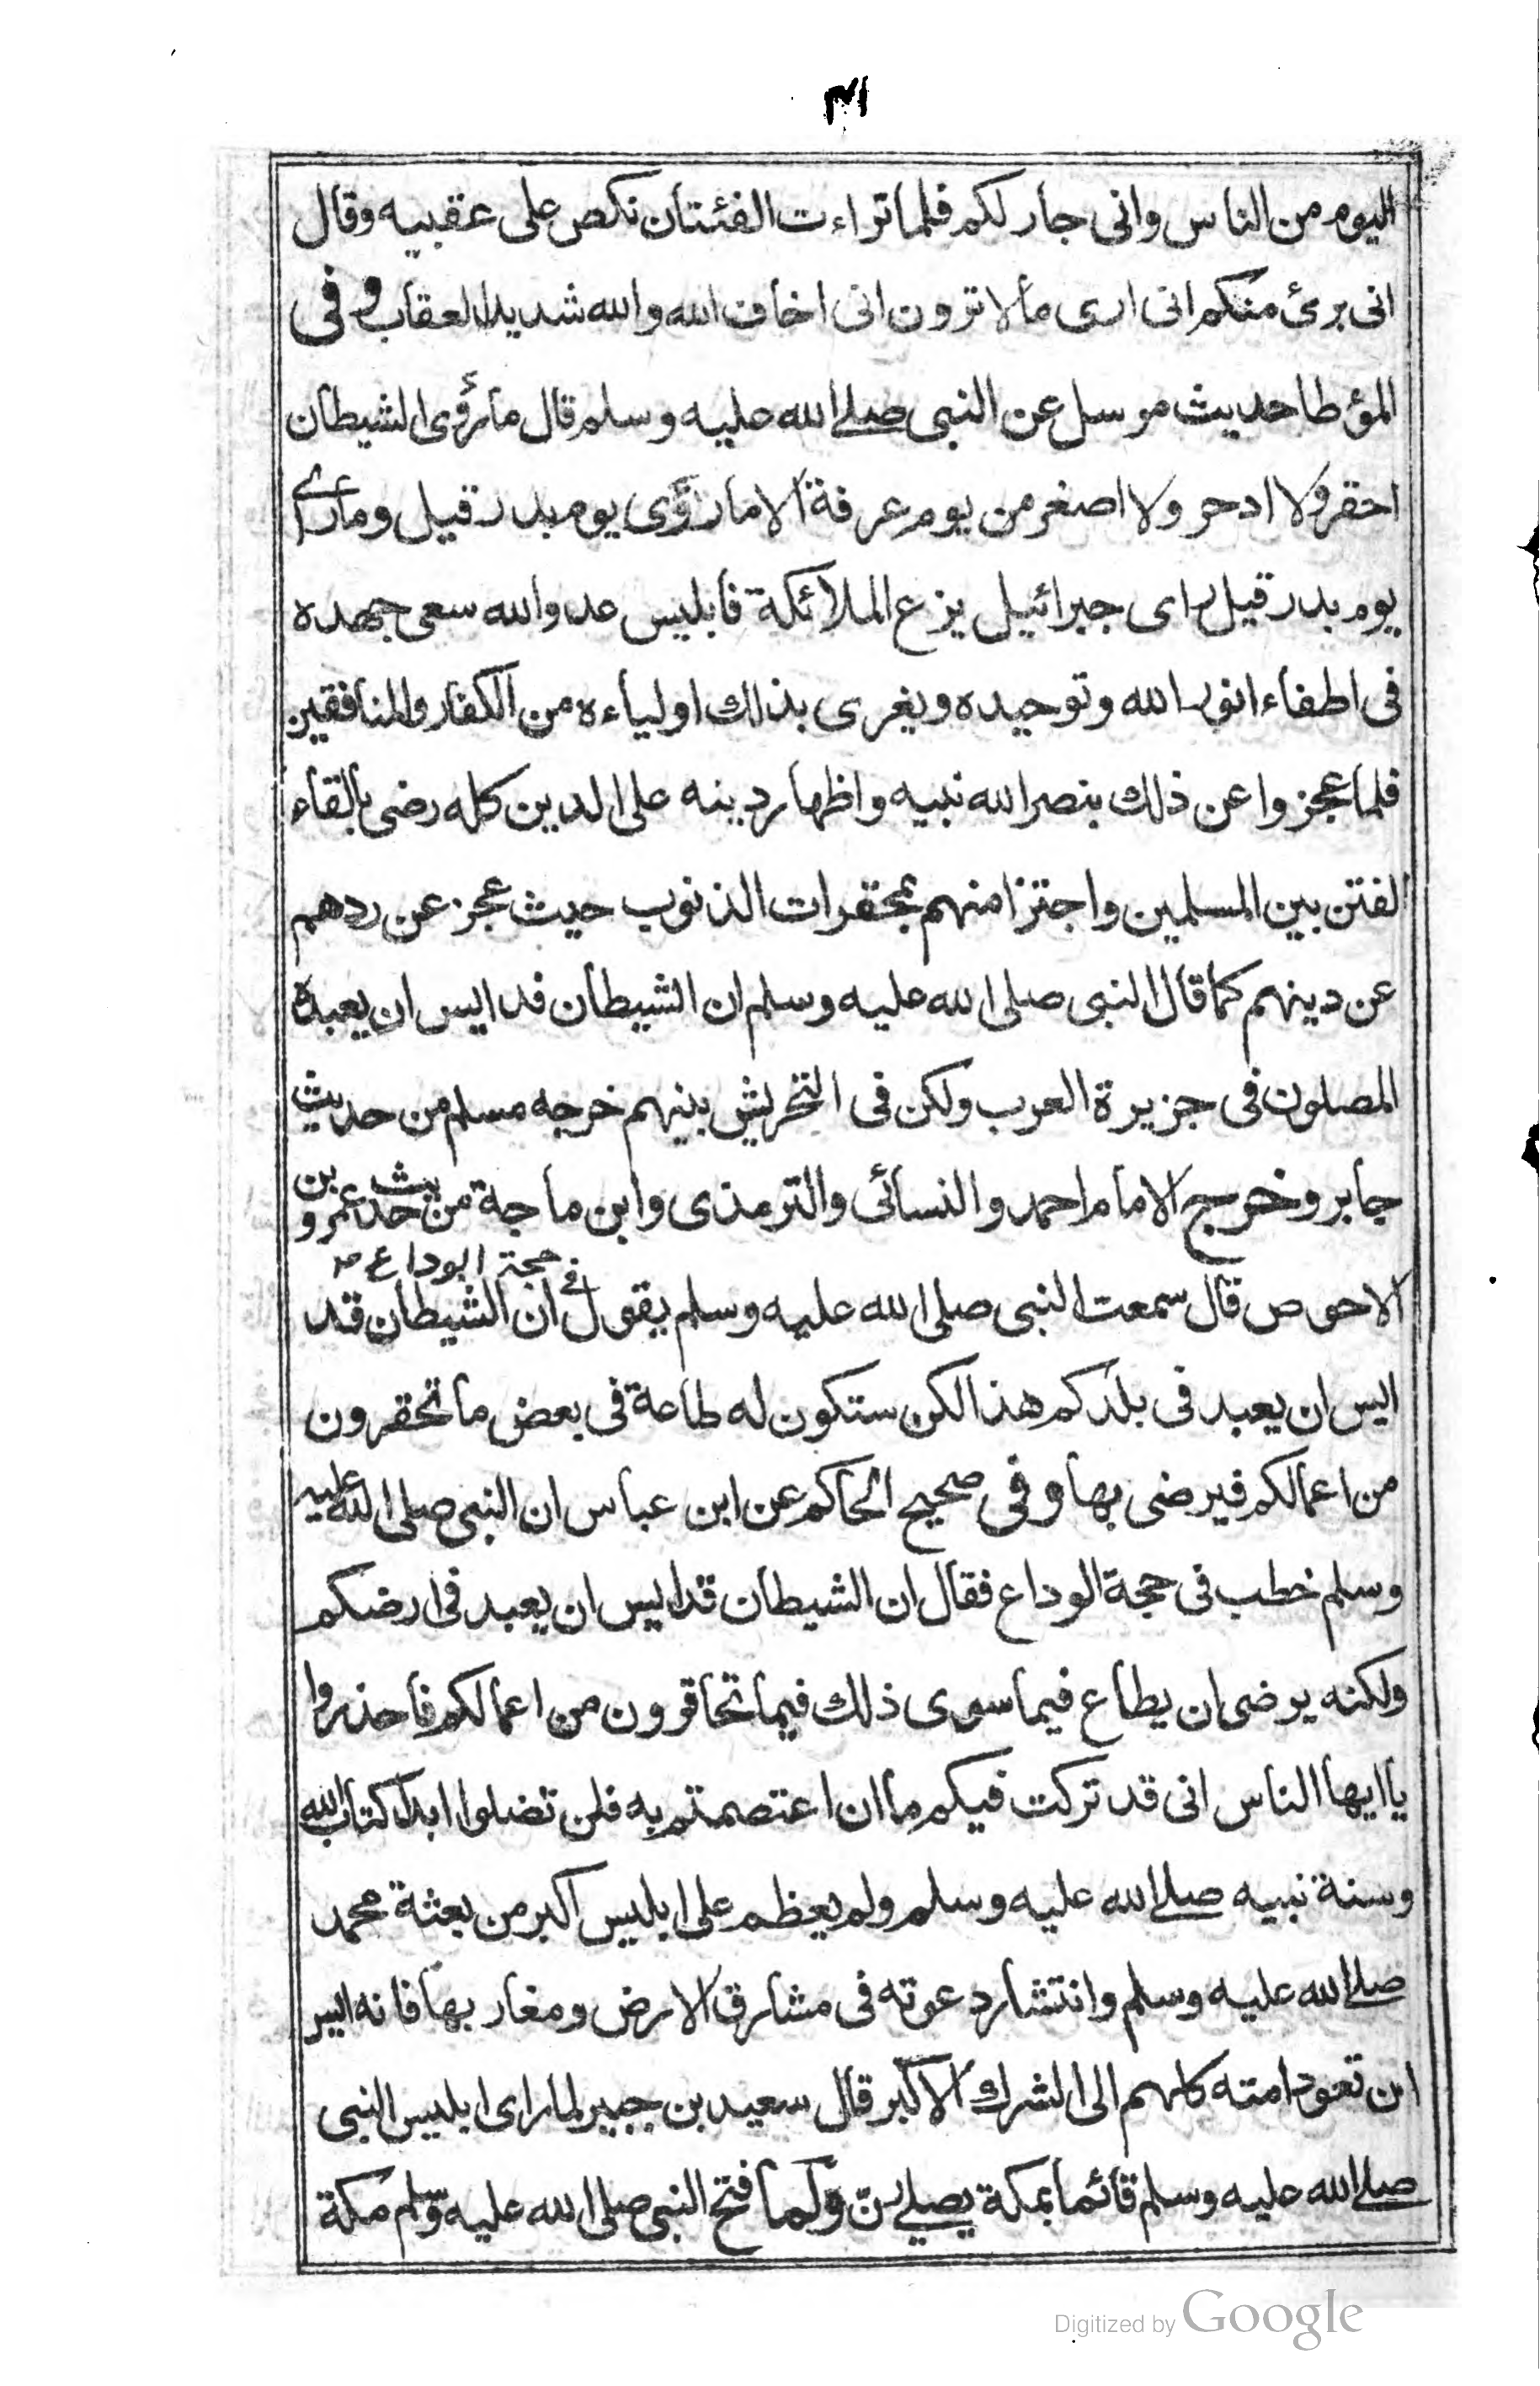 اليوم من الناس وانى جار لكم فلما تراءت الفئتان نكص على عقبيه وقال
انى برئ منكم انى ارى مالا ترون انى اخاف الله والله شديد العقاب وفى
المؤطا حديث مرسل عن النبى صلى الله عليه وسلم قال ما رؤى الشيطان
احقر ولا ادحر ولا اصغر من يوم عرفة الا ما رؤى يوم بدر قيل وما راى
يوم بدر قيل راى جبرائيل يزع الملائكة فابليس عدو الله سعى جهده
فى اطفاء انور الله وتوحيده ويغرى بذلك اولياءه من الكفار والمنافقين
فلما عجزوا عن ذلك بنصر الله نبيه واظهار دينه على الدين كله رضى بالقاء
لفتن بين المسلمين واجتزا منهم بمحقرات الذنوب حيث عجز عن ردهم
عن دينهم كما قال النبى صلى الله عليه وسلم ان الشيطان قد ايس ان يعبده
المصلون فى جزيرة العرب ولكن فى التحريش بينهم خرجه مسلم من حديث
جابر وخرج الامام احمد والنسائى والترمذى وابن ماجة من حديث عمرو بن
فى حجة الوداع
الاحوص قال سمعت النبى صلى الله عليه وسلم يقول ان الشيطان قد
ايس ان يعبد فى بلدكم هذا لكن ستكون له طاعة فى بعض ما تحقرون
من اعمالكم فيرضى بها وفى صحيح الحاكم عن ابن عباس ان النبى صلى الله عليه
وسلم خطب فى حجة الوداع فقال ان الشيطان قد ايس ان يعبد فى ارضكم
ولكنه يرضى ان يطاع فيما سوى ذلك فيما تحاقرون من اعمالكم فاحذروا
يا ايها الناس انى قد تركت فيكم ما ان اعتصمتم به فلن تضلوا ابدا كتاب الله
وسنة نبيه صلى الله عليه وسلم ولم يعظم على ابليس اكبر من بعثة محمد
صلى الله عليه وسلم وانتشار دعوته فى مشارق الارض ومغاربها فانه ايس
ان تعود امته كلهم الى الشرك الاكبر قال سعيد بن جبير لما راى ابليس النبى
صلى الله عليه وسلم قائما بمكة يصلى رن ولما فتح النبى صلى الله عليه وسلم مكة
Digitized by Google